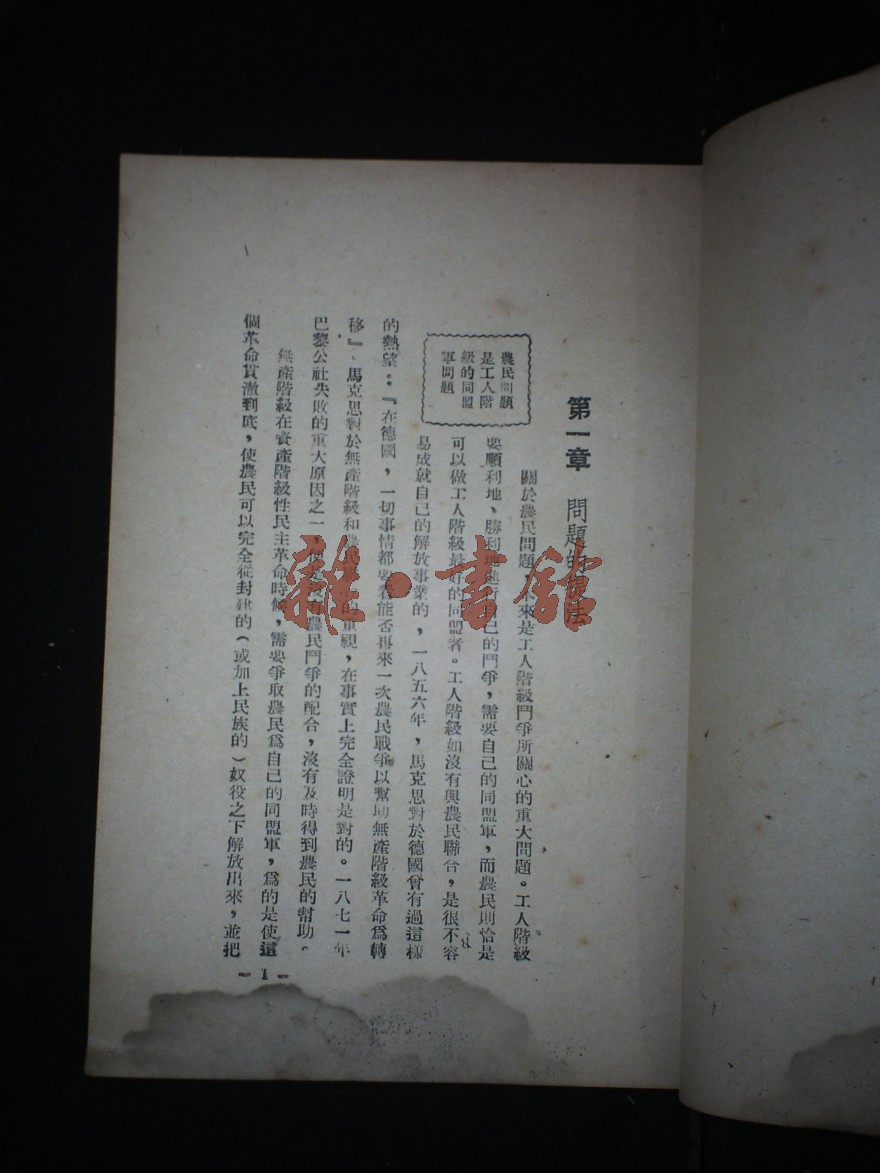 第一章　問題的提法
農民問題
是工人階
級的同盟
軍問題
關於農民問題　來是工人階級鬥爭所關心的重大問題。工人階級
要順利地、勝利地進行自己的鬥爭，需要自己的同盟軍，而農民則恰是
可以做工人階級最好的同盟者。工人階級如沒有與農民聯合，是很不容
易成就自己的解放事業的，一八五六年，馬克思對於德國曾有過這樣
的熱望：『在德國，一切事情都要看能否再來一次農民戰爭以幫助無產階級革命爲轉
移』，馬克思對於無產階級和農民　的重視，在事實上完全證明是對的。一八七一年
巴黎公社失敗的重大原因之一，便是沒有農民鬥爭的配合，沒有及時得到農民的幫助。
無產階級在資產階級性民主革命時候，需要爭取農民爲自己的同盟軍，爲的是使這
個革命貫澈到底，使農民可以完全從封建的（或加上民族的）奴役之下解放出來，並把
-1-
雜·書館